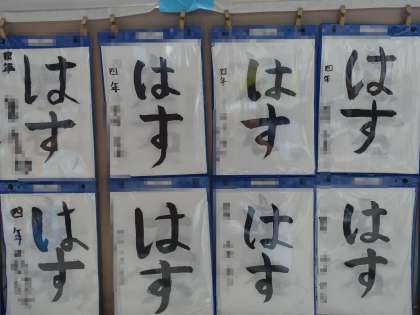 はす
四年
はす
四年
はす
四年
はす
四年
はす
四年
はす
はす
はす